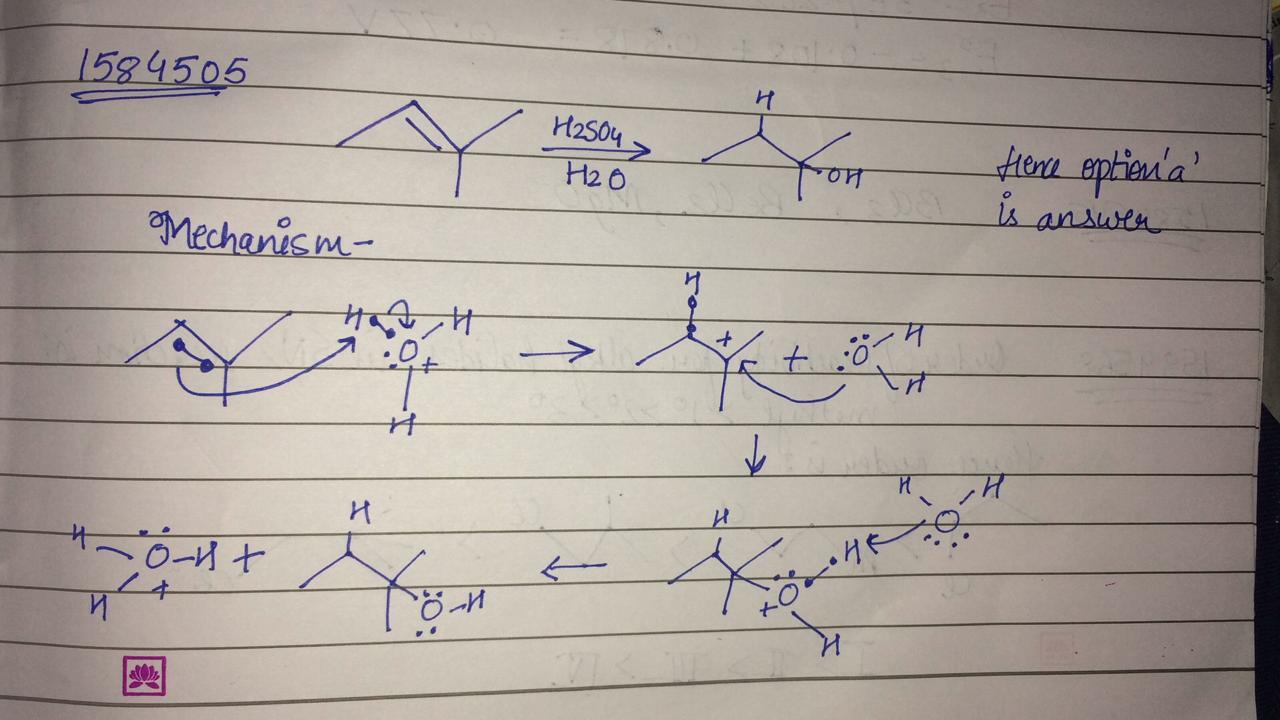 1584505
H
H2SO4
H2O
OH
Hence option 'a'
is answer
Mechanism-
H H
O
+
H
H
+
+
O
H
H
H H
O
H
H
O-H +
+
H
H
O-H
H
H
O
+
H